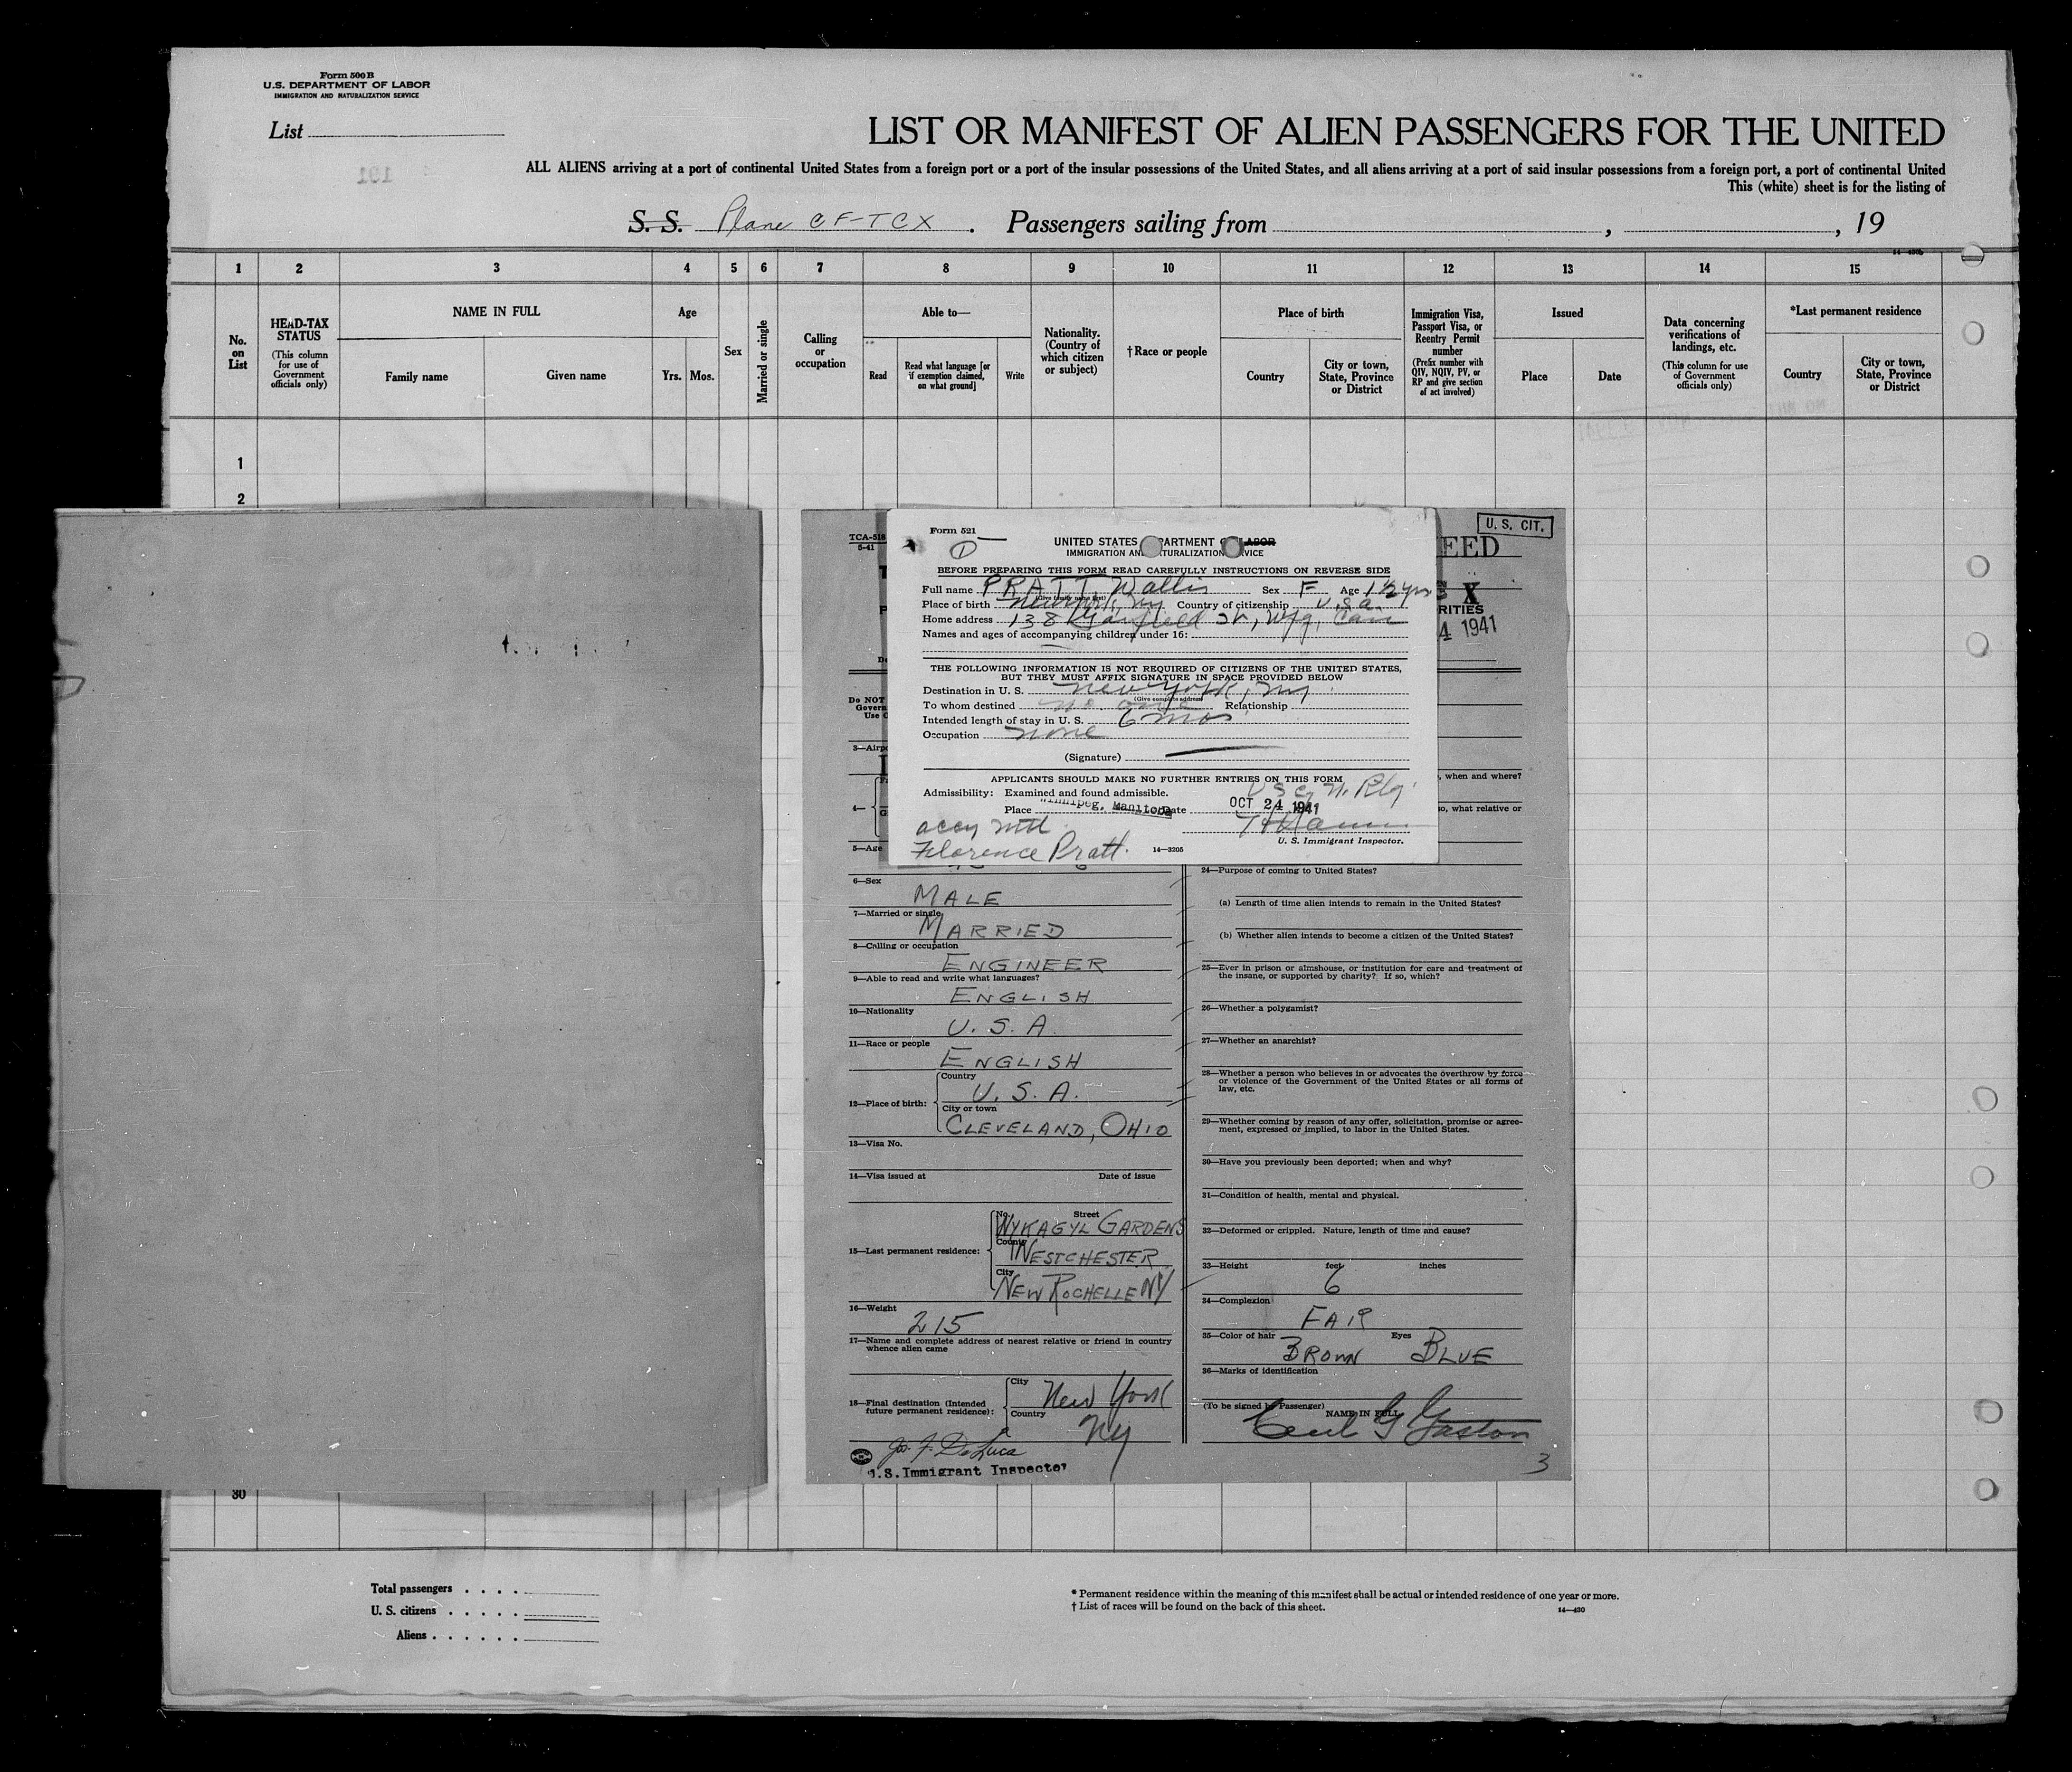 Form 500 B
U.S. DEPARTMENT OF LABOR
IMMIGRATION AND NATURALIZATION SERVICE
List
191
LIST OR MANIFEST OF ALIEN PASSENGERS FOR THE UNITED
ALL ALIENS arriving at a port of continental United States from a foreign port or a port of the insular possessions of the United States, and all aliens arriving at a port of said insular possessions from a foreign port, a port of continental United
This (white) sheet is for the listing of
S. S. Plane CF-TCX . Passengers sailing from , , 19
14—430b
1 2 3 4 5 6 7 8 9 10 11 12 13 14 15
No. on List
HEAD-TAX STATUS
(This column for use of Government officials only)
NAME IN FULL
Family name
Given name
Age
Yrs. Mos.
Sex
Married or single
Calling or occupation
Able to—
Read
Read what language [or if exemption claimed, on what ground]
Write
Nationality. (Country of which citizen or subject)
† Race or people
Place of birth
Country
City or town, State, Province or District
Immigration Visa, Passport Visa, or Reentry Permit number
(Prefix number with QIV, NQIV, PV, or RP and give section of act involved)
Issued
Place
Date
Data concerning verifications of landings, etc.
(This column for use of Government officials only)
*Last permanent residence
Country
City or town, State, Province or District
1
2
30
TCA-518
5-41
U. S. CIT.
EED
X
RITIES
4 1941
Do NOT
Govern
Use
3—Airpo
4—
5—Age
, when and where?
so, what relative or
Form 521
1
UNITED STATES PARTMENT LABOR
IMMIGRATION AN TURALIZATION VICE
BEFORE PREPARING THIS FORM READ CAREFULLY INSTRUCTIONS ON REVERSE SIDE
Full name PRATT, Wallis Sex F Age 1½ yrs
(Give family name first)
Place of birth New York, NY Country of citizenship U.S.A.
Home address 138 Garfield St, Wpg, Can
Names and ages of accompanying children under 16:
THE FOLLOWING INFORMATION IS NOT REQUIRED OF CITIZENS OF THE UNITED STATES,
BUT THEY MUST AFFIX SIGNATURE IN SPACE PROVIDED BELOW
Destination in U. S. New York, NY
(Give complete address)
To whom destined no one Relationship
Intended length of stay in U. S. 6 mos
Occupation none
(Signature)
APPLICANTS SHOULD MAKE NO FURTHER ENTRIES ON THIS FORM
Admissibility: Examined and found admissible.
Place Winnipeg, Manitoba Date OCT 24 1941
accy mtl
Florence Pratt.
U. S. Immigrant Inspector.
14—3205
6—Sex
MALE
7—Married or single
MARRIED
8—Calling or occupation
ENGINEER
9—Able to read and write what languages?
ENGLISH
10—Nationality
U. S. A.
11—Race or people
ENGLISH
12—Place of birth:
Country
U. S. A.
City or town
CLEVELAND, OHIO
13—Visa No.
14—Visa issued at Date of issue
15—Last permanent residence:
No. Street
WYKAGYL GARDENS
County
WESTCHESTER
City
NEW ROCHELLE NY
16—Weight
215
17—Name and complete address of nearest relative or friend in country
whence alien came
18—Final destination (Intended
future permanent residence):
City
New York
Country
NY
Jos. F. De Luca
U.S. Immigrant Inspector
24—Purpose of coming to United States?
(a) Length of time alien intends to remain in the United States?
(b) Whether alien intends to become a citizen of the United States?
25—Ever in prison or almshouse, or institution for care and treatment of
the insane, or supported by charity? If so, which?
26—Whether a polygamist?
27—Whether an anarchist?
28—Whether a person who believes in or advocates the overthrow by force
or violence of the Government of the United States or all forms of
law, etc.
29—Whether coming by reason of any offer, solicitation, promise or agree-
ment, expressed or implied, to labor in the United States.
30—Have you previously been deported; when and why?
31—Condition of health, mental and physical.
32—Deformed or crippled. Nature, length of time and cause?
33—Height feet inches
6
34—Complexion
FAIR
35—Color of hair Eyes
BROWN BLUE
36—Marks of identification
(To be signed by Passenger)
NAME IN FULL
Cecil G Gaston
3
Total passengers . . . .
U. S. citizens . . . . .
Aliens . . . . . .
* Permanent residence within the meaning of this manifest shall be actual or intended residence of one year or more.
† List of races will be found on the back of this sheet.
14—430